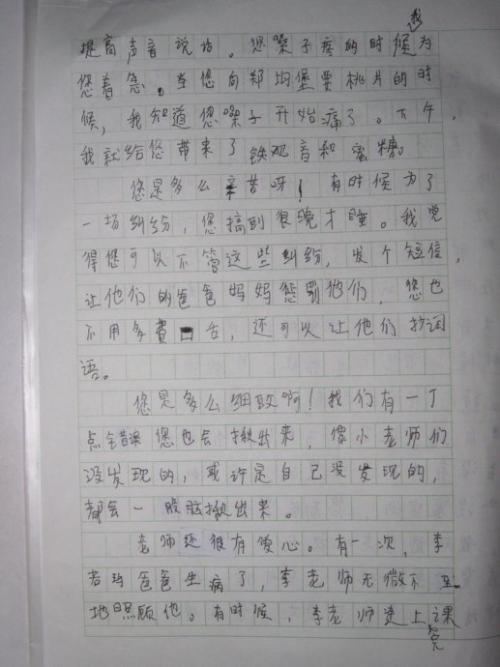 提高声音说话。您嗓子疼的时候我为
您着急。当您向郑均堡要桃片的时
候,我知道您嗓子开始痛了。下午,
我就给您带来了铁观音和蜜糖。
您是多么辛苦呀!有时候为了
一场纠纷,您搞到很晚才睡。我觉
得您可以不管这些纠纷,发个短信,
让他们的爸爸妈妈惩罚他们,您也
不用多费口舌,还可以让他们抄词
语。
您是多么细致啊!我们有一丁
点全错误您也会揪出来,像小老师们
没发现的,或许是自己没发现的,
都会一股脑揪出来。
老师还很有爱心。有一次,李
若 爸爸生病了,李老师无微不至
地照顾他。有时候,李老师边上课